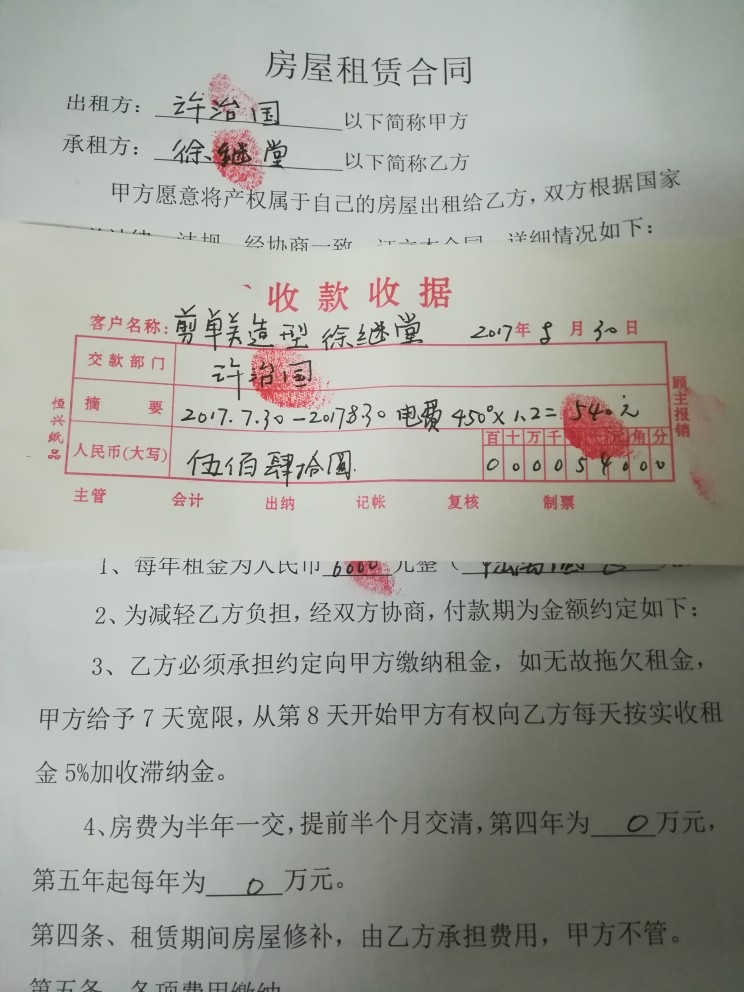 房屋租赁合同
出租方：许治国 以下简称甲方
承租方：徐继堂 以下简称乙方
甲方愿意将产权属于自己的房屋出租给乙方，双方根据国家
法规，经协商一致，订立本合同，详细情况如下：
收款收据
客户名称：剪单美造型 徐继堂 2017年8月30日
交款部门 许治国
摘要 2017.7.30—2017830 电费 450°×1.2=540元
百十万千 角分
人民币(大写) 伍佰肆拾圆. 000054000
主管 会计 出纳 记帐 复核 制票
恒兴纸品
顾主报销
1、每年租金为人民币 元整（
2、为减轻乙方负担，经双方协商，付款期为金额约定如下：
3、乙方必须承担约定向甲方缴纳租金，如无故拖欠租金，
甲方给予7天宽限，从第8天开始甲方有权向乙方每天按实收租
金5%加收滞纳金。
4、房费为半年一交，提前半个月交清，第四年为 0 万元，
第五年起每年为 0 万元。
第四条、租赁期间房屋修补，由乙方承担费用，甲方不管。
第五条、各项费用缴纳